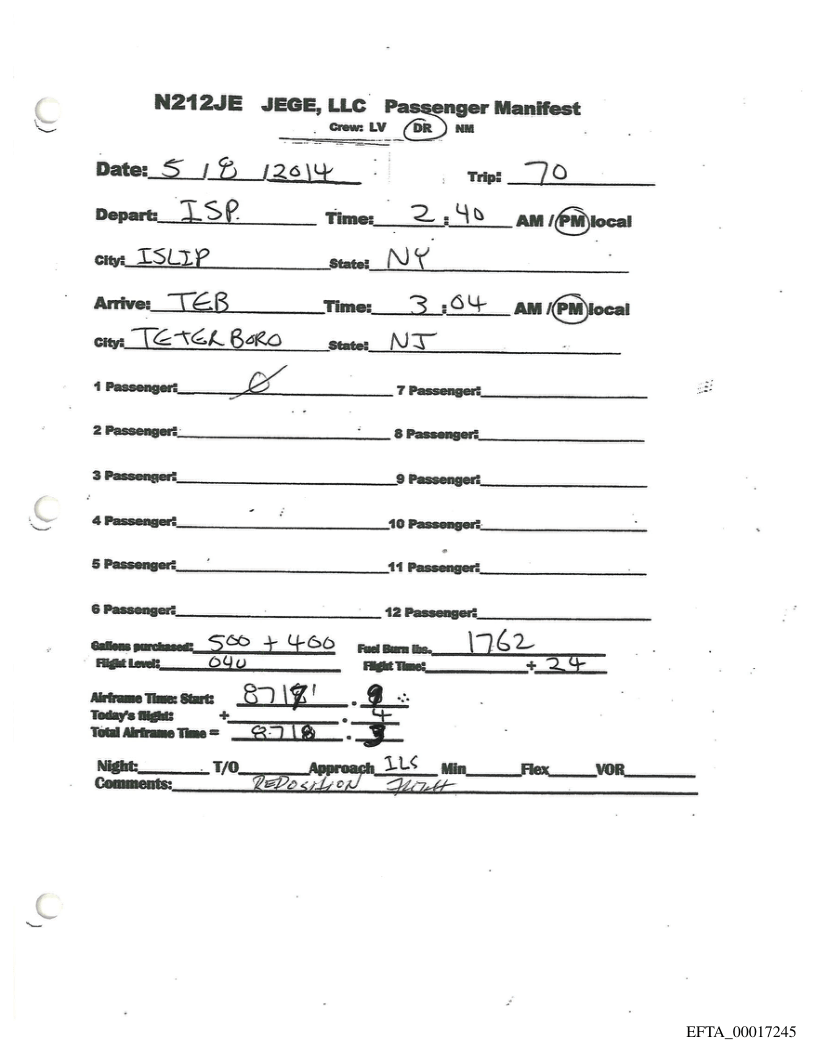 N212JE JEGE, LLC Passenger Manifest
Crew: LV DR NM
Date: 5 / 8 / 2014 Trip: 70
Depart: ISP. Time: 2 : 40 AM / PM local
City: ISLIP State: NY
Arrive: TEB Time: 3 : 04 AM / PM local
City: TETERBORO State: NJ
1 Passenger: 0 7 Passenger:
2 Passenger: 8 Passenger:
3 Passenger: 9 Passenger:
4 Passenger: 10 Passenger:
5 Passenger: 11 Passenger:
6 Passenger: 12 Passenger:
Gallons purchased: 500 + 400 Fuel Burn lbs. 1762
Flight Level: 040 Flight Time: + 24
Airframe Time: Start:
Today's flight: + . 4
Total Airframe Time = 8718 .
Night: T/O Approach ILS Min Flex VOR
Comments: REPOSITION FLIGHT
EFTA_00017245